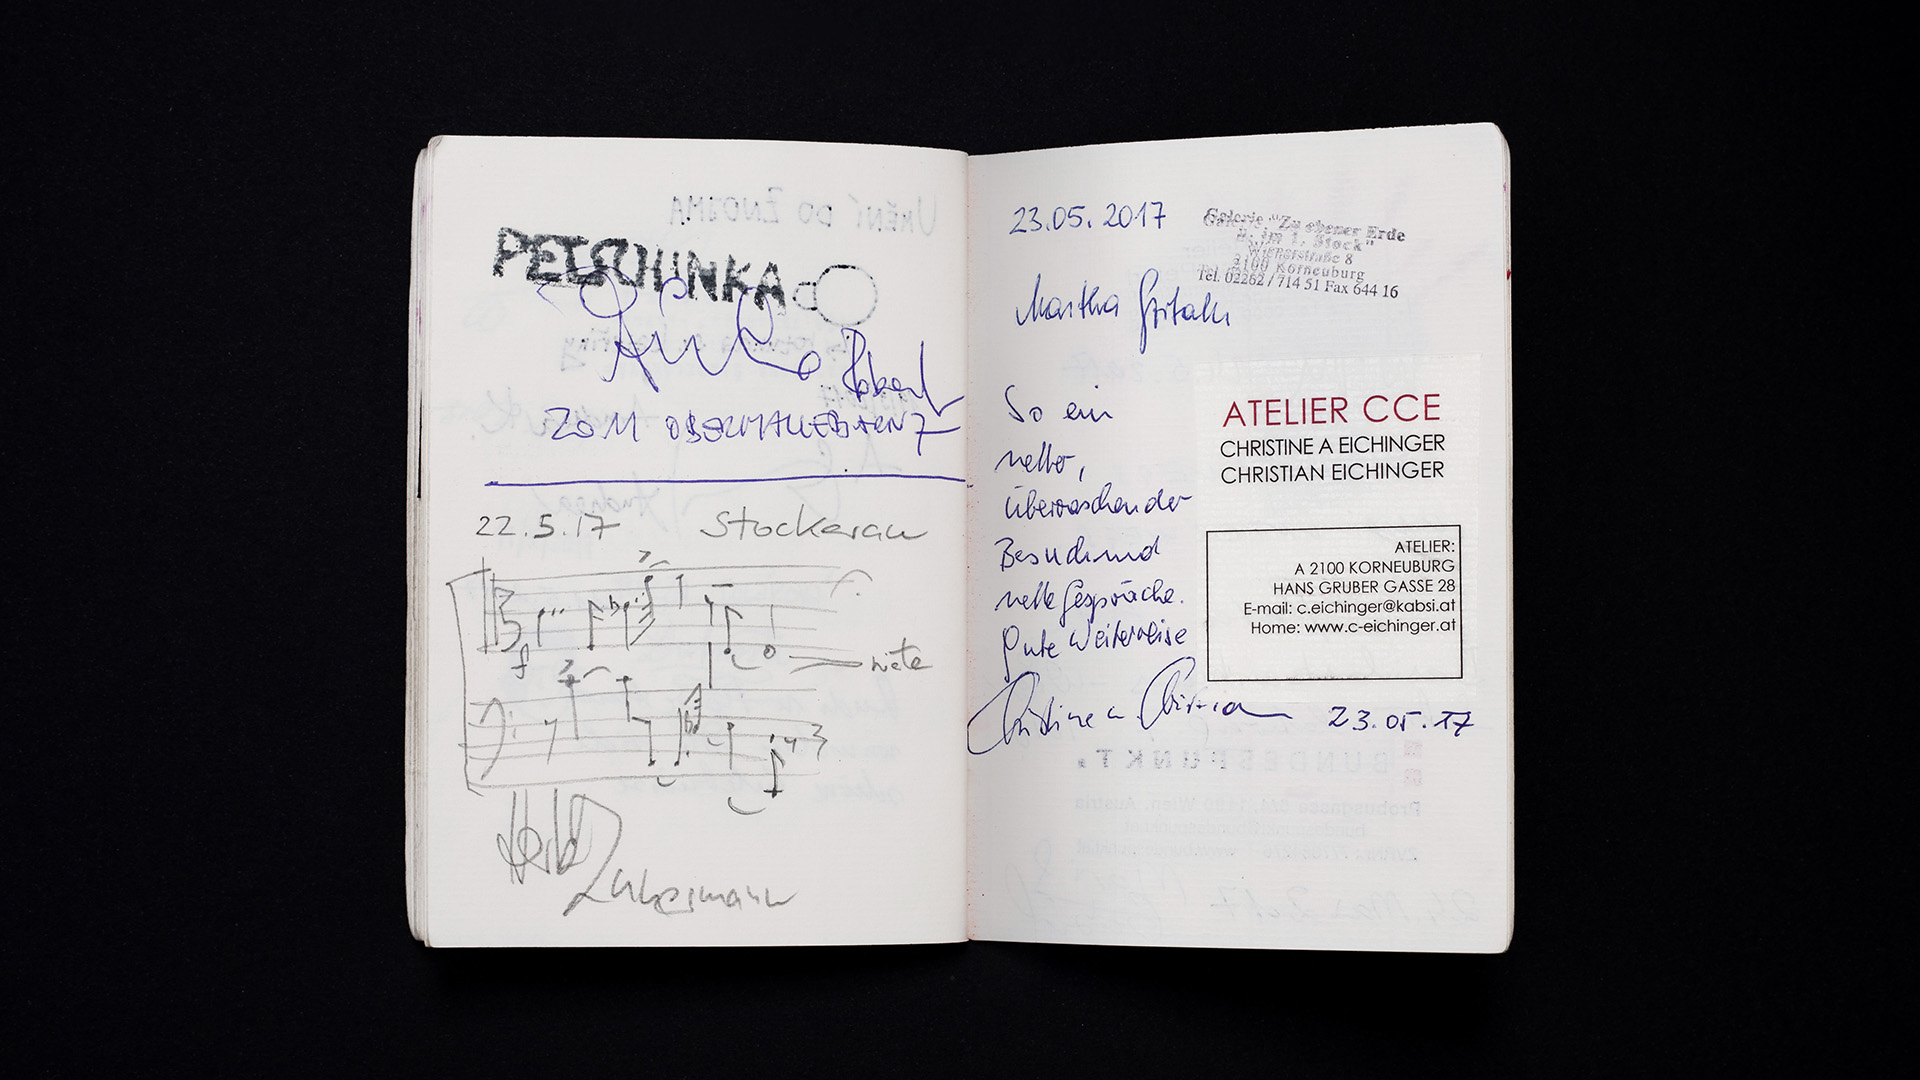 PETSCHINKA
Robert
ZOM OBERMALLEBARN
22.5.17 Stockerau
f
niete
23.05.2017
Galerie "Zu ebener Erde
u. im 1. Stock"
Wienerstraße 8
2100 Korneuburg
Tel. 02262 / 714 51 Fax 644 16
Martha
So ein
netter,
überraschender
Besuch und
nette Gespräche.
Gute Weiterreise
Christine u. Christian 23.05.17
ATELIER CCE
CHRISTINE A EICHINGER
CHRISTIAN EICHINGER
ATELIER:
A 2100 KORNEUBURG
HANS GRUBER GASSE 28
E-mail: c.eichinger@kabsi.at
Home: www.c-eichinger.at